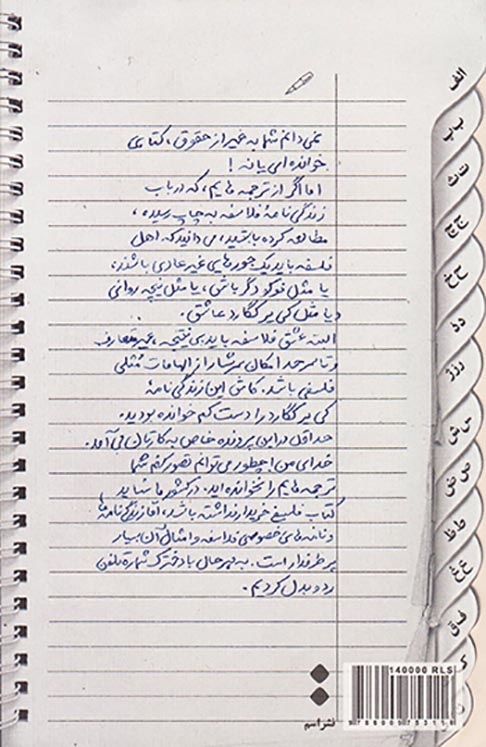 نمی‌دانم شما به غیر از حقوق، کتابی
خوانده‌ای یا نه!
اما اگر از ترجمه‌هایم، که در باب
زندگی‌نامهٔ فلاسفه به چاپ رسیده،
مطالعه کرده باشید، می‌دانید که اهل
فلسفه باید یک جورهایی غیرعادی باشند،
یا مثل فوکو دگرباش، یا مثل نیچه روانی
و یا مثل کی‌یرکگارد عاشق.
البته عشق فلاسفه باید بی‌نتیجه، غیرمتعارف
و تا سرحد امکان سرشار از الهامات مُثُلی
فلسفی باشد. کاش این زندگی‌نامهٔ
کی‌یرکگارد را دست کم خوانده بودید.
حداقل در این پرونده خاص به کارتان می‌آمد.
خدای من! چطور می‌توانم تصور کنم شما
ترجمه‌هایم را نخوانده‌اید. در کشور ما شاید
کتاب فلسفی خریدار نداشته باشد، اما زندگی‌نامه‌ها
و نامه‌های خصوصی فلاسفه و امثال آن بسیار
پرطرفدار است. به هر حال با دخترک شماره تلفن
رد و بدل کردیم.
الف
ب پ
ت ث
ج چ
ح خ
د ذ
ر ز ژ
س ش
ص ض
ط ظ
ع غ
ف ق
نشر اسم
140000 RLS